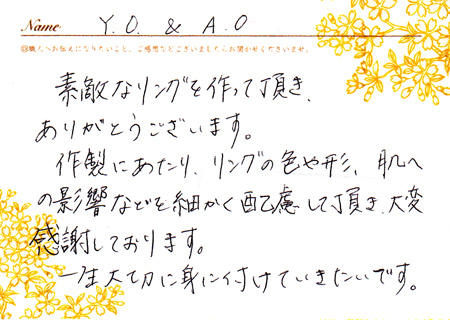 Name Y.O. & A.O
◎職人へお伝えになりたいこと、ご感想などございましたらお聞かせくださいませ。
素敵なリングを作って頂き、
ありがとうございます。
作製にあたり、リングの色や形、肌へ
の影響などを細かく配慮して頂き、大変
感謝しております。
一生大切に身に付けていきたいです。